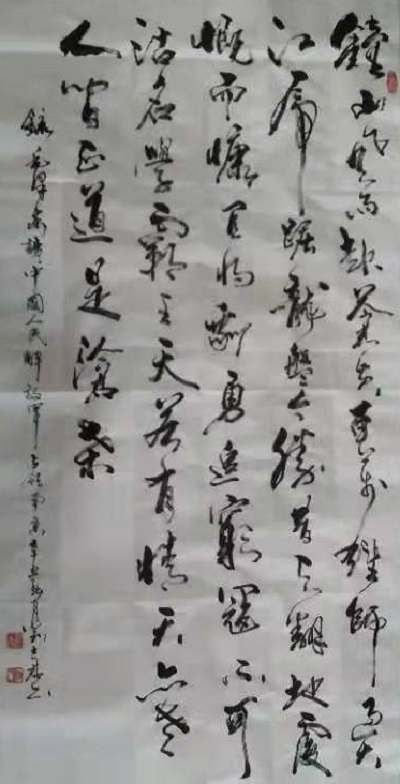 鐘山風雨起蒼黃百万雄師過大
江虎踞龍盤今勝昔天翻地覆
慨而慷宜將剩勇追窮寇不可
沽名學霸王天若有情天亦老
人間正道是滄桑
錄毛澤東詩中國人民解放軍占領南京辛丑